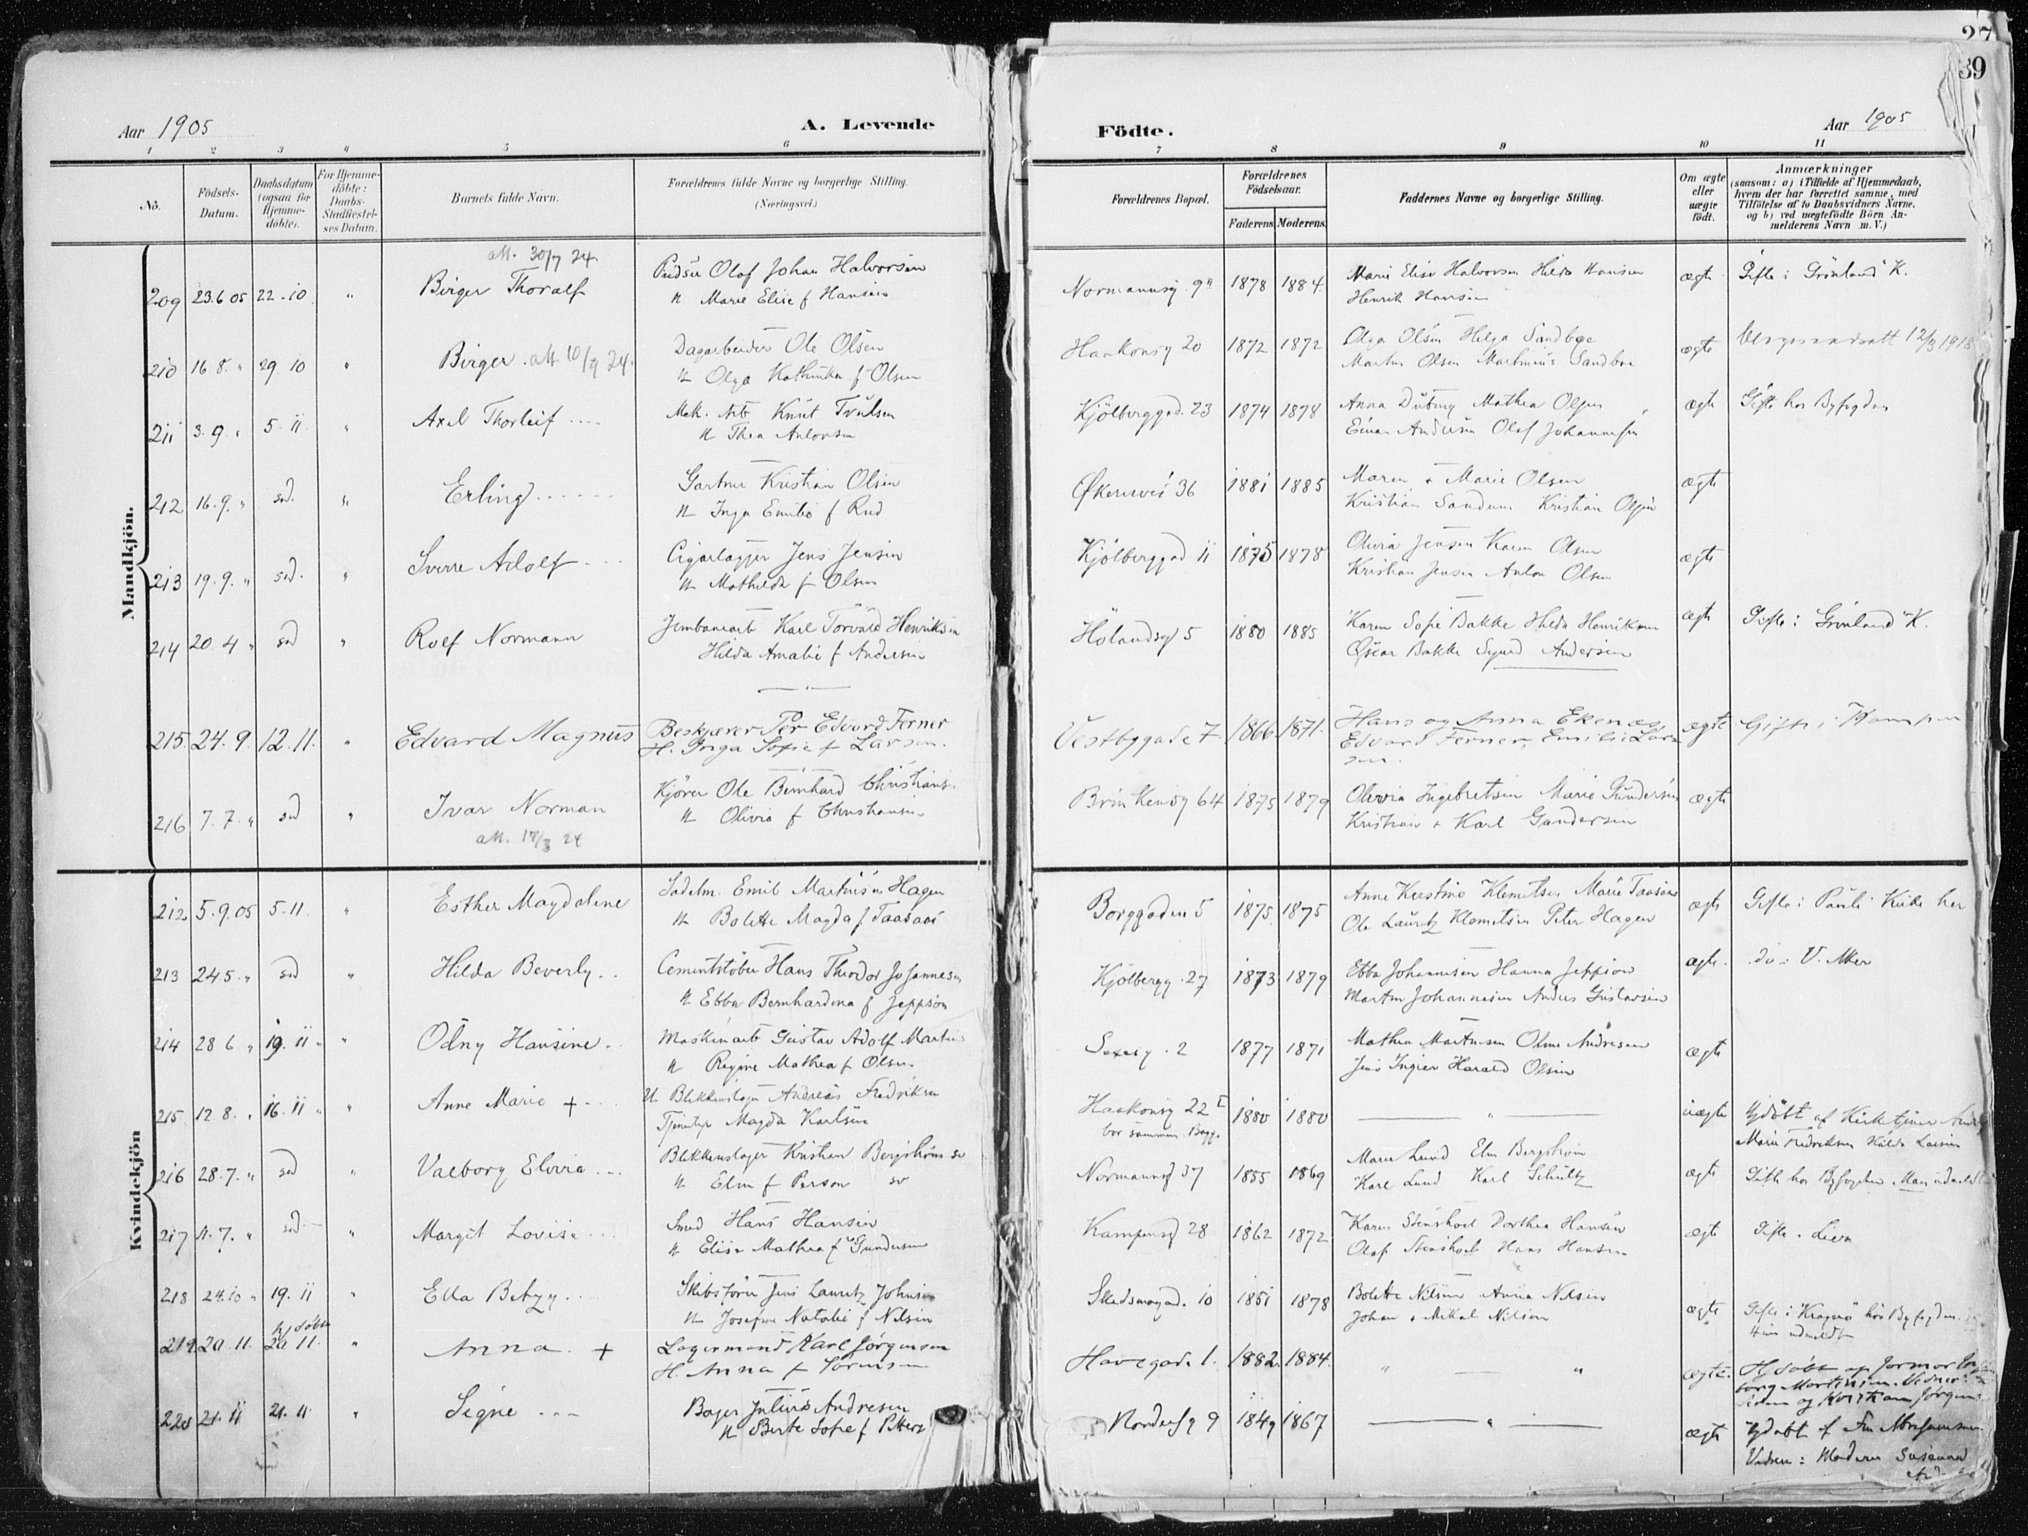 27
39
Aar 1905
A. Levende
Födte.
Aar 1905
1 2 3 4 5 6 7 8 9 10 11
No.
Födsels-Datum.
Daabsdatum (ogsaa för Hjemme-döbte).
For Hjemme-döbte: Daabs-Stadfæstel-ses Datum.
Barnets fulde Navn.
Forældrenes fulde Navne og borgerlige Stilling. (Næringsvei.)
Forældrenes Bopæl.
Forældrenes Födselsaar.
Faderens. Moderens.
Faddernes Navne og borgerlige Stilling.
Om ægte eller uægte födt.
Anmærkninger
(saasom: a) i Tilfælde af Hjemmedaab, hvem der har forrettet samme, med Tilföielse af to Daabsvidners Navne, og b) ved uægtefödte Börn Anmelderens Navn m. V.)
Mandkjön.
att. 30/7 24.
209 23.6 05 22.10 " Birger Thoralf Pudser Olaf Johan Halvorsen
H Marie Elise f Hansen
Normannsg. 9" 1878 1884 Marie Elise Halvorsen Hilda Hansen
Henrik Hansen
ægte Gifte i Grönland K.
210 16.8. " 29 10 " Birger. att. 10/9 24. Dagarbeider Ole Olsen
H Olga Kathinka f Olsen
Haakonsg 20 1872 1872 Olga Olsen Helga Sandboe
Martin Olsen Martinius Sandboe
ægte 12/3 1918
211 3.9. " 5.11. " Axel Thorleif Mek. Arb Knut
H Thea
Kjölberggad. 23 1874 1878 Anna Mathea Olsen
Einar Andersen Olaf Johannesen
ægte Gifte hos Byfogden
212 16.9. " sed. " Erling Gartner Kristian Olsen
H Inga Emilie f Rud
Økernvei 36 1881 1885 Maren + Marie Olsen
Kristian Kristian Olsen
ægte
213 19.9. " sed. " Sverre Adolf Cigarlagger Jens Jensen
H Mathilda f Olsen
Kjölberggad 11 1875 1878 Olivia Jensen Karen Olsen
Kristian Jensen Anton Olsen
ægte
214 20 4 " sed " Rolf Normann Jernbanearb Karl Torvald Henriksen
Hilda Amalie f Andersen
Hölandsg 5 1880 1885 Karen Sofie Bakke Hilda Henriksen
Oscar Bakke Sigurd Andersen
ægte Gifte i Grönland K.
215. 24.9. 12.11. " Edvard Magnus Beskjærer Per Edvard Ferner
H. Inga Sofie f Larsen.
Vestbygade 7. 1866 1871. Hans og Anna Ekenæs,
Edvard Ferner, Emilie Lar
sen.
ægte Gifte i Kampen
216 7.7. " sed " Ivar Norman Kjörer Ole Bernhard Christians.
H Olivia f Christiansen
att. 18/3 24
Brinkensg 64 1875 1879 Olivia Ingebretsen Marie Gundersen
Kristian + Karl Gundersen
ægte
Kvindekjön
212 5.9.05 5.11. " Esther Magdalene Sadelm. Emil Martinsen Hagen
H Bolette Magda f Taasaas
Borggaden 5 1875. 1875 Anne Kerstine Klemetsen Marie Taasaas
Ole Lauritz Klemetsen Peter Hagen
ægte Gifte i Pauli Kirke her
213 24.5. " sed " Hilda Beverly Cementstöber Hans Theodor Johannesen
H Ebba Bernhardina f Jeppson
Kjölbergg. 27 1873 1879 Ebba Johannesen Hanna Jeppson
Martin Johannesen Anders Gustavsen
ægte. do i V. Aker
214 28 6 " 19. 11 " Odny Hansine. Maskinarb Gustav Adolf Martins
H Regine Mathea f Olsen.
Sexesg. 2 1877 1871 Mathea Martinsen Oline Andresen
Jens Ingier Harald Olsen
ægte
215 12 8. " 16. 11 " Anne Marie + U Blikkenslager Andreas Fredriksen
Tjenestep Magda Karlsen
Haakonsg 22 I
bor sammen. Begge
1880 1880 uægte Hjdöbt af Kirketjener
Marie Fredriksen Hilda Larsen
216 28.7. " sed " Valborg Elvira Blikkenslager Kristian Bergström sv
H Elin f Person sv
Normannsg 37 1855 1869 Marie Lund Elin Bergström
Karl Lund Karl Schultz
ægte Gifte hos Byfogden
217 11.7. " sed " Margit Lovise Smed Hans Hansen
H Elise Mathea f Gundersen
Kampensg 28 1862 1872 Karen Stenshoel Dorthea Hansen
Olaf Stenshoel Hans Hansen
ægte Gifte i Lier
218 24.10 " 19.11 " Ella Betzy Skibsförer Jens Lauritz Johnsen
H Josefine Natalie f Nilsen
Skedsmogad. 10 1851 1878 Bolette Nilsen Anna Nilsen
Johan + Mikal Nilsen
ægte Gifte i Kragerö hos Byfogden.
Hun udmeldt
hj. döbt
219. 20 11. 20 11. " Anna. + Lagermand Karl Jörgensen
H. Anna f Sörensen
Havegade 1. 1882. 1884. " " ægte. Hjdöbt af Jormor
borg Mortensen. Vidner
og Kristian Jörgen
220 21. 11 21. 11 " Signe Bager Julius Andresen
H Berte Sofie f
Nordersg 9 1849 1867 " ægte Hjdöbt af Fru Abrahamsen
Vidner: Moderen Susanna